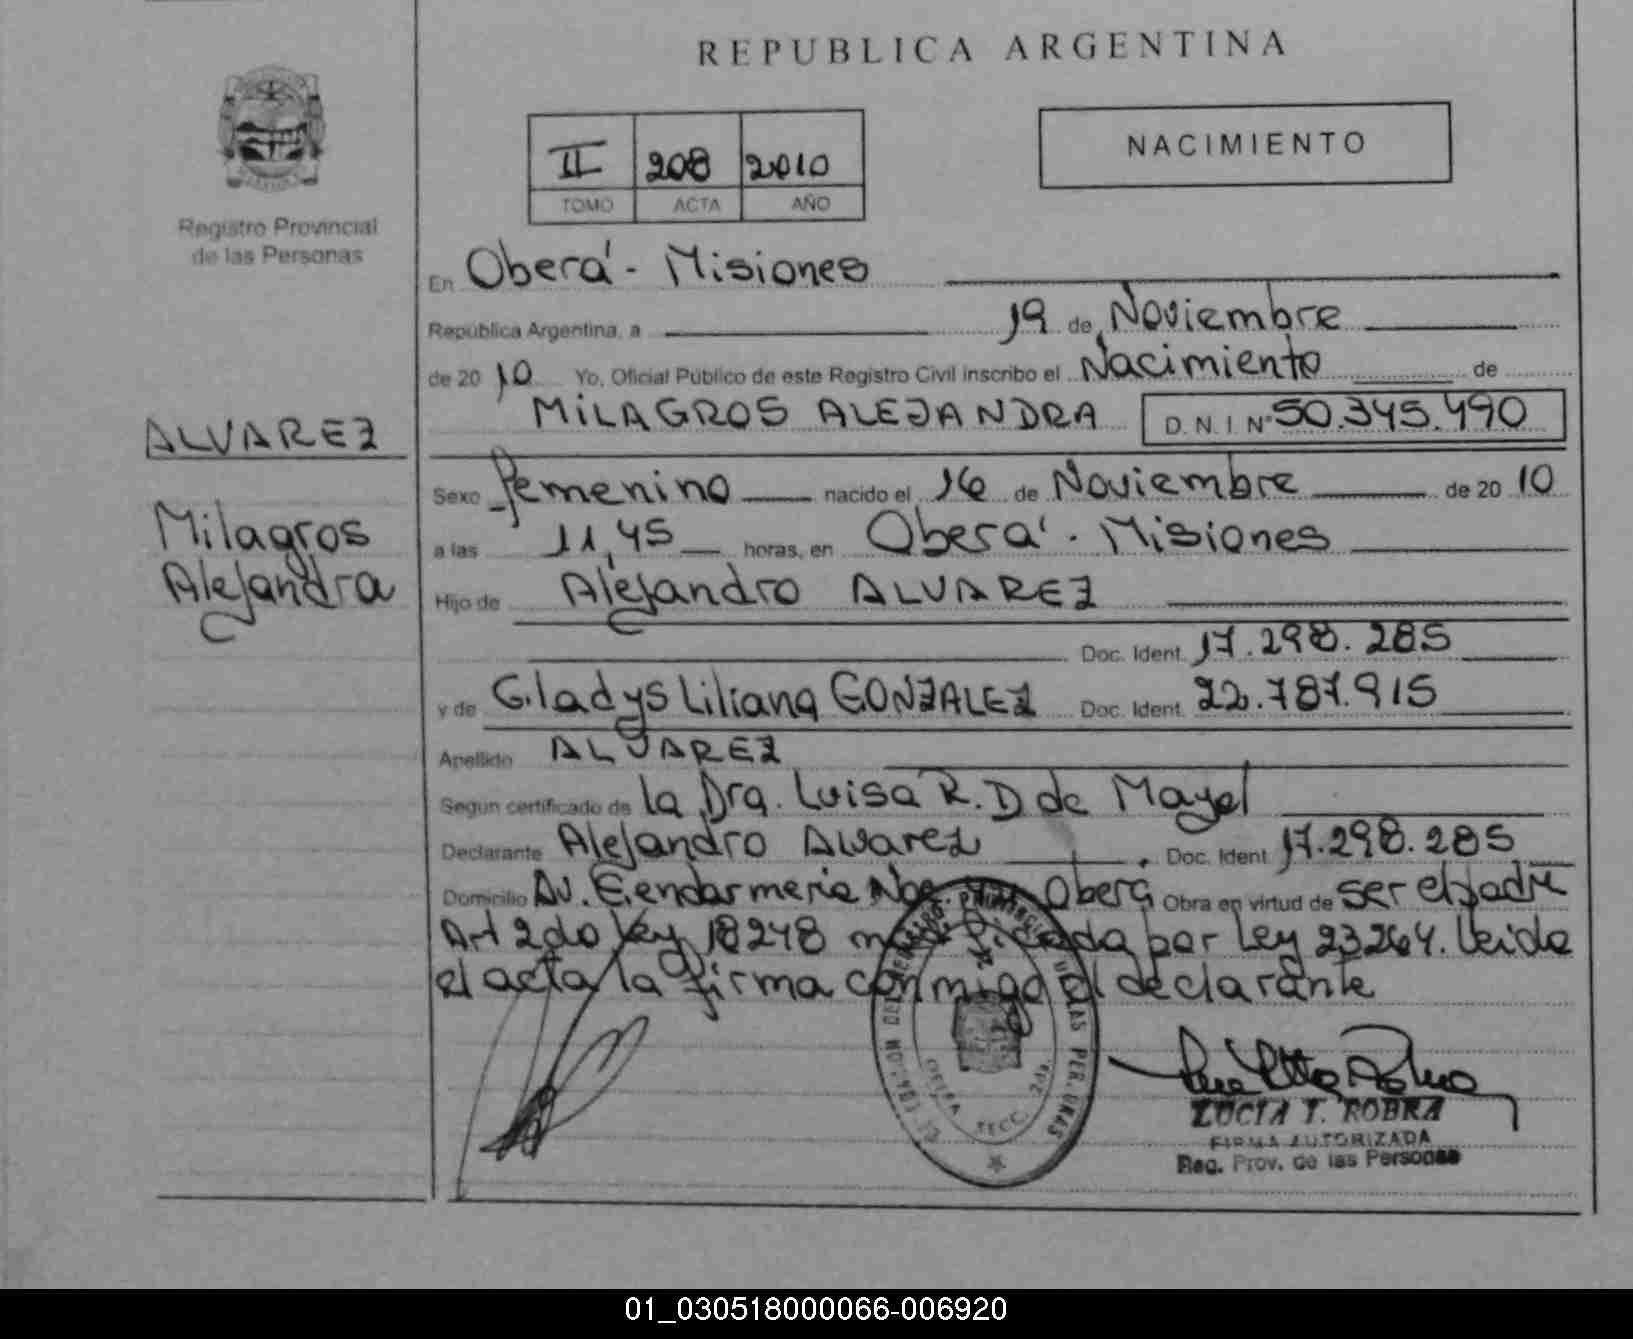 REPUBLICA ARGENTINA
NACIMIENTO
II 208 2010
TOMO ACTA AÑO
Registro Provincial
de las Personas
ALVAREZ
Milagros
Alejandra
En Oberá - Misiones
República Argentina, a 19 de Noviembre
de 20 10 Yo, Oficial Público de este Registro Civil inscribo el Nacimiento de
MILAGROS ALEJANDRA D. N. I. Nº 50.345.490
Sexo femenino nacido el 16 de Noviembre de 20 10
a las 11,45 horas, en Oberá - Misiones
Hijo de Alejandro ALVAREZ
Doc. Ident. 17.298.285
y de Gladys Liliana GONZALEZ Doc. Ident. 22.787.915
Apellido ALVAREZ
Según certificado de la Dra. Luisa R. D de Mayol
Declarante Alejandro Alvarez Doc. Ident 17.298.285
Domicilio Av. Gendarmeria Oberá Obra en virtud de ser el padre
Art 2do Ley 18248 modificada por Ley 23264. Leida
el acta la firma conmigo el declarante
LUCIA T. ROBRA
FIRMA AUTORIZADA
Reg. Prov. de las Personas
01_030518000066-006920